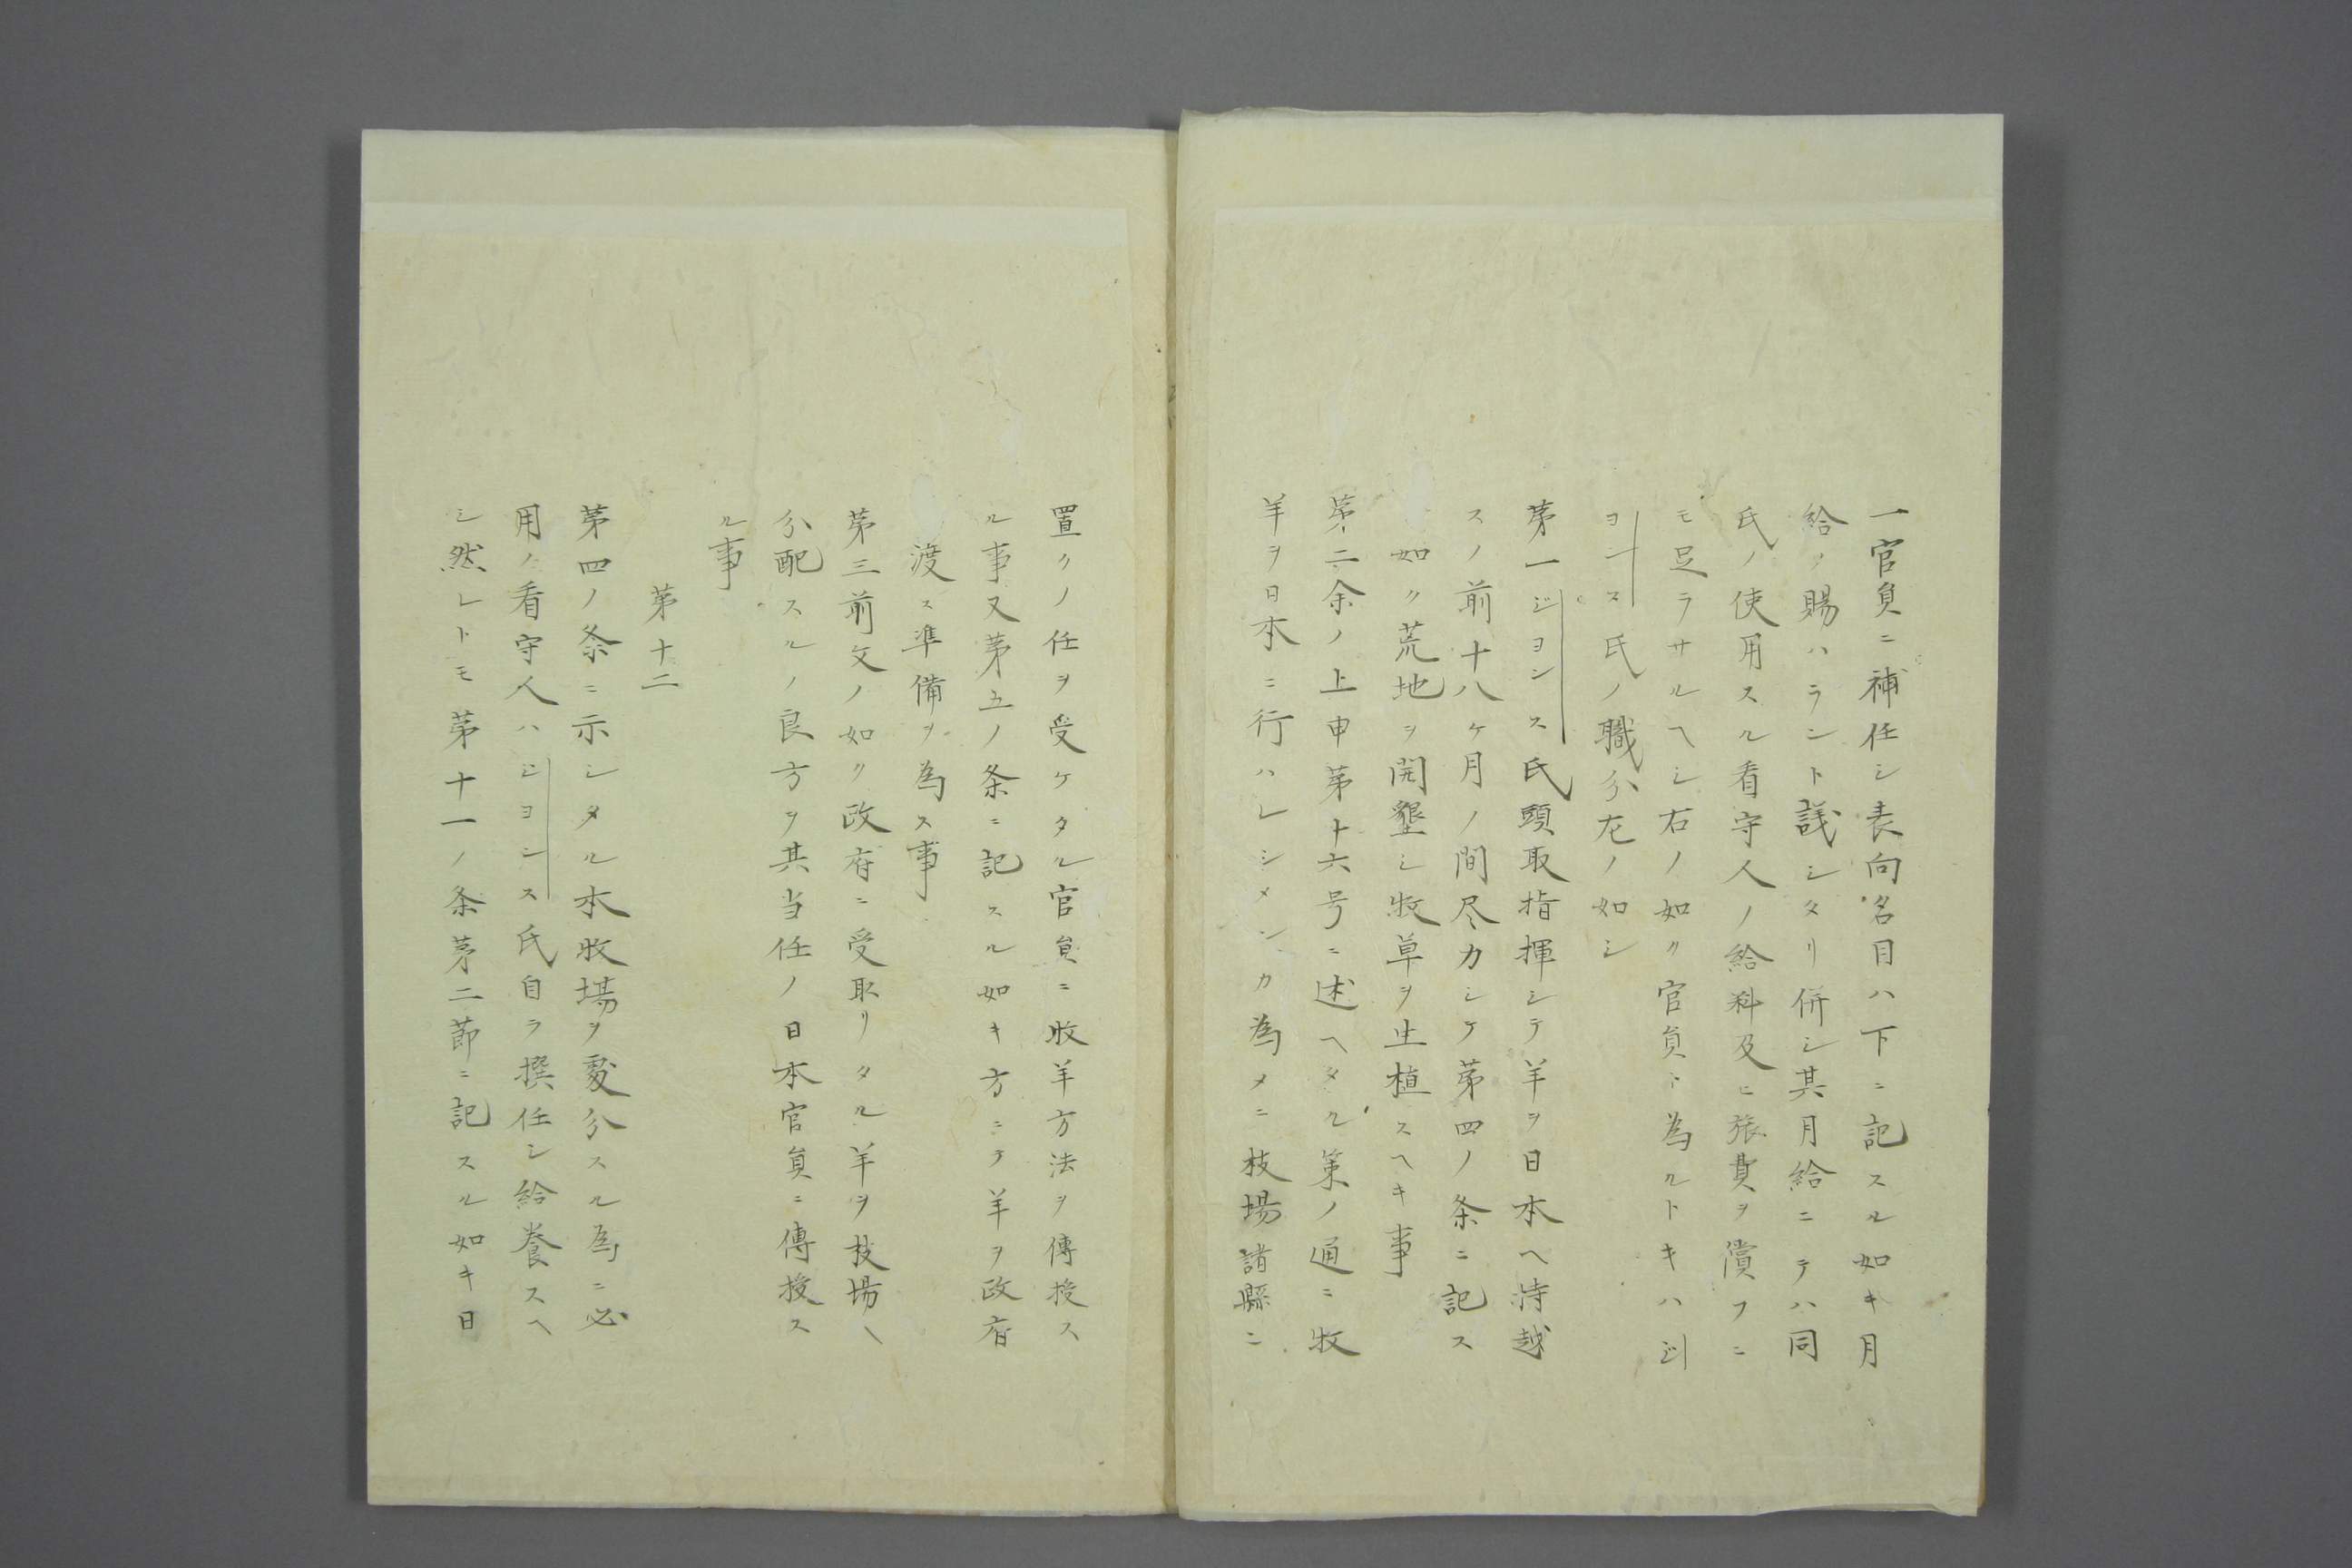 一官員ニ補任シ表向名目ハ下ニ記スル如キ月
給ヲ賜ハラント議シタリ併シ其月給ニテハ同
氏ノ使用スル看守人ノ給料及ヒ旅費ヲ償フニ
モ足ラサルヘシ右ノ如ク官員ト為ルトキハジ
ヨンス氏ノ職分左ノ如シ
第一ジヨンス氏頭取指揮シテ羊ヲ日本ヘ持越
スノ前十八ケ月ノ間尽力シテ第四ノ条ニ記ス
如ク荒地ヲ開墾シ牧草ヲ生植スヘキ事
第二余ノ上申第十六号ニ述ヘタル策ノ通ニ牧
羊ヲ日本ニ行ハレシメンカ為メニ枝場諸縣ニ
置クノ任ヲ受ケタル官員ニ牧羊方法ヲ傳授ス
ル事又第五ノ条ニ記スル如キ方ニテ羊ヲ政府
渡ス準備ヲ為ス事
第三前文ノ如ク政府ニ受取リタル羊ヲ枝場ヘ
分配スルノ良方ヲ其当任ノ日本官員ニ傳授ス
ル事
第十二
第四ノ条ニ示シタル本牧場ヲ處分スル為ニ必
用ノ看守人ハジヨンス氏自ラ撰任シ給養スヘ
シ然レトモ第十一ノ条第二節ニ記スル如キ日